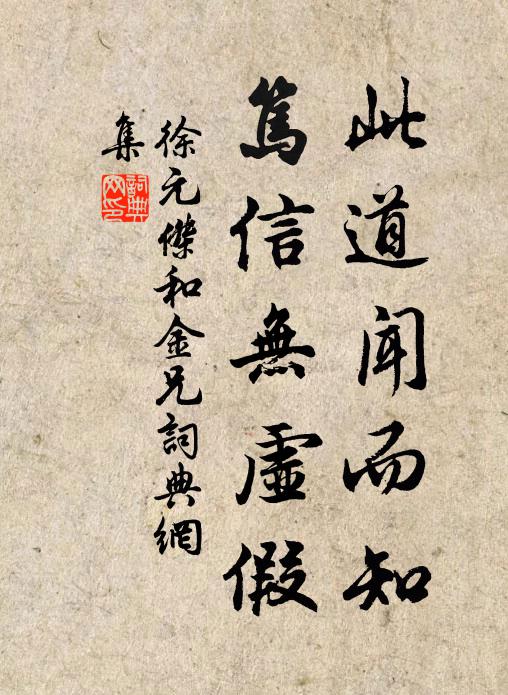 此道聞而知
篤信無虛假
徐元傑和金兄詞典網
集
詞典
网印